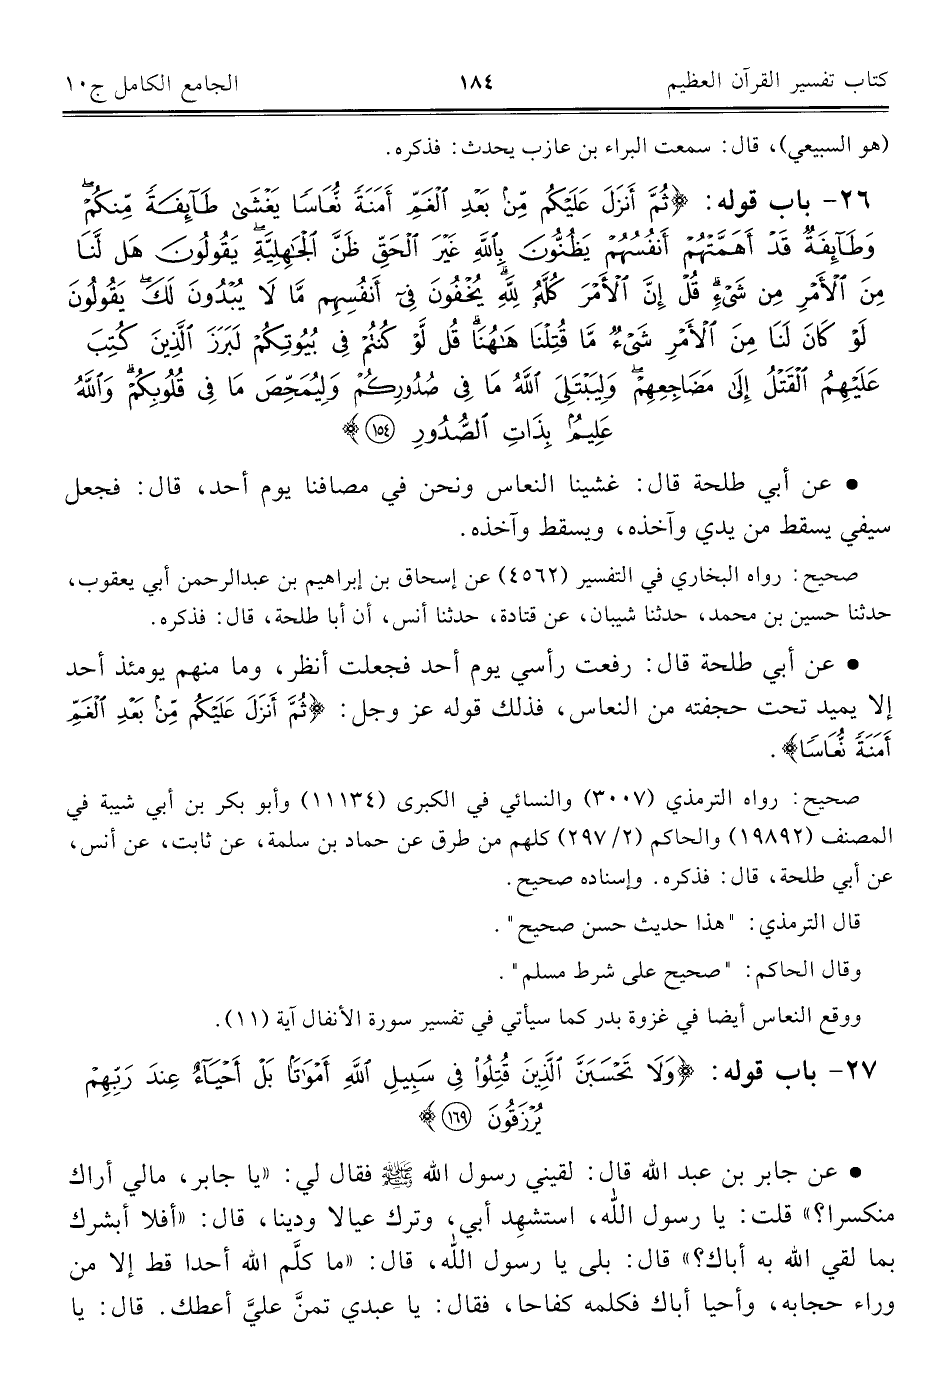 كتاب تفسير القرآن العظيم ١٨٤ الجامع الكامل ج١٠
(هو السبيعي)، قال: سمعت البراء بن عازب يحدث: فذكره.
٢٦- باب قوله: ﴿ثُمَّ أَنزَلَ عَلَيْكُم مِّنۢ بَعْدِ ٱلْغَمِّ أَمَنَةً نُّعَاسًا يَغْشَىٰ طَآئِفَةً مِّنكُمْ ۖ
وَطَآئِفَةٌ قَدْ أَهَمَّتْهُمْ أَنفُسُهُمْ يَظُنُّونَ بِٱللَّهِ غَيْرَ ٱلْحَقِّ ظَنَّ ٱلْجَٰهِلِيَّةِ ۖ يَقُولُونَ هَل لَّنَا
مِنَ ٱلْأَمْرِ مِن شَىْءٍ ۗ قُلْ إِنَّ ٱلْأَمْرَ كُلَّهُۥ لِلَّهِ ۗ يُخْفُونَ فِىٓ أَنفُسِهِم مَّا لَا يُبْدُونَ لَكَ ۖ يَقُولُونَ
لَوْ كَانَ لَنَا مِنَ ٱلْأَمْرِ شَىْءٌ مَّا قُتِلْنَا هَٰهُنَا ۗ قُل لَّوْ كُنتُمْ فِى بُيُوتِكُمْ لَبَرَزَ ٱلَّذِينَ كُتِبَ
عَلَيْهِمُ ٱلْقَتْلُ إِلَىٰ مَضَاجِعِهِمْ ۖ وَلِيَبْتَلِىَ ٱللَّهُ مَا فِى صُدُورِكُمْ وَلِيُمَحِّصَ مَا فِى قُلُوبِكُمْ ۗ وَٱللَّهُ
عَلِيمٌۢ بِذَاتِ ٱلصُّدُورِ ١٥٤﴾
• عن أبي طلحة قال: غشينا النعاس ونحن في مصافنا يوم أحد، قال: فجعل
سيفي يسقط من يدي وآخذه، ويسقط وآخذه.
صحيح: رواه البخاري في التفسير (٤٥٦٢) عن إسحاق بن إبراهيم بن عبدالرحمن أبي يعقوب،
حدثنا حسين بن محمد، حدثنا شيبان، عن قتادة، حدثنا أنس، أن أبا طلحة، قال: فذكره.
• عن أبي طلحة قال: رفعت رأسي يوم أحد فجعلت أنظر، وما منهم يومئذ أحد
إلا يميد تحت حجفته من النعاس، فذلك قوله عز وجل: ﴿ثُمَّ أَنزَلَ عَلَيْكُم مِّنۢ بَعْدِ ٱلْغَمِّ
أَمَنَةً نُّعَاسًا﴾.
صحيح: رواه الترمذي (٣٠٠٧) والنسائي في الكبرى (١١١٣٤) وأبو بكر بن أبي شيبة في
المصنف (١٩٨٩٢) والحاكم (٢/ ٢٩٧) كلهم من طرق عن حماد بن سلمة، عن ثابت، عن أنس،
عن أبي طلحة، قال: فذكره. وإسناده صحيح.
قال الترمذي: "هذا حديث حسن صحيح".
وقال الحاكم: "صحيح على شرط مسلم".
ووقع النعاس أيضا في غزوة بدر كما سيأتي في تفسير سورة الأنفال آية (١١).
٢٧- باب قوله: ﴿وَلَا تَحْسَبَنَّ ٱلَّذِينَ قُتِلُوا۟ فِى سَبِيلِ ٱللَّهِ أَمْوَٰتًۢا بَلْ أَحْيَآءٌ عِندَ رَبِّهِمْ
يُرْزَقُونَ ١٦٩﴾
• عن جابر بن عبد الله قال: لقيني رسول الله ﷺ فقال لي: «يا جابر، مالي أراك
منكسرا؟» قلت: يا رسول الله، استشهِد أبي، وترك عيالا ودينا، قال: «أفلا أبشرك
بما لقي الله به أباك؟» قال: بلى يا رسول الله، قال: «ما كلَّم الله أحدا قط إلا من
وراء حجابه، وأحيا أباك فكلمه كفاحا، فقال: يا عبدي تمنَّ عليَّ أعطك. قال: يا